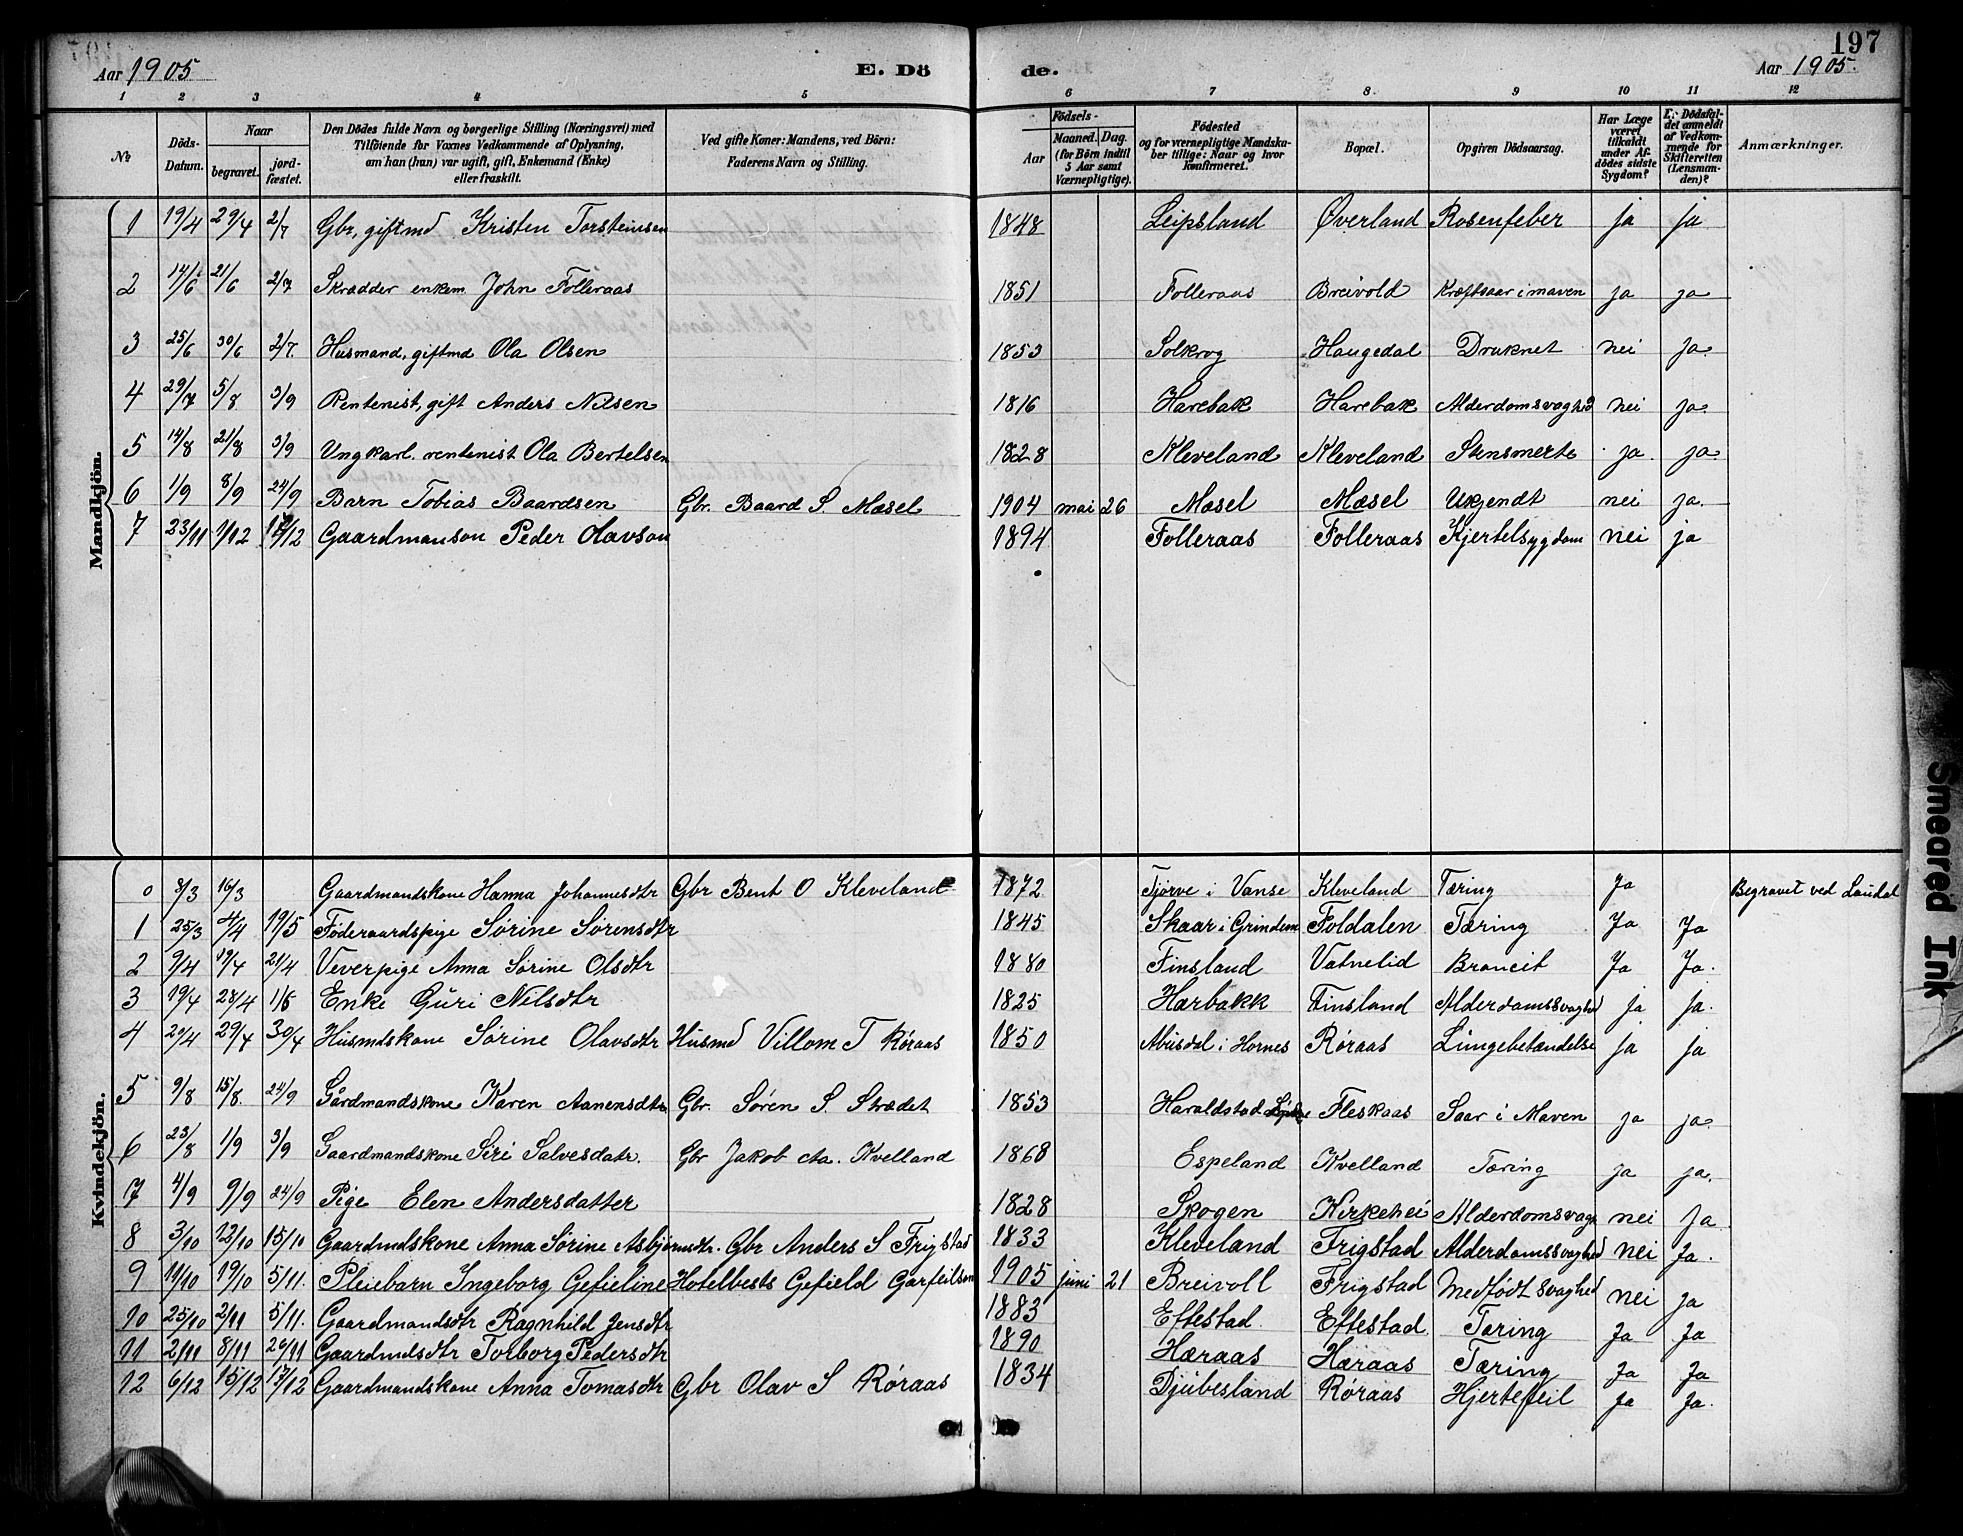 Aar 1905 E. Dö de. Aar 1905. 197
1 2 3 4 5 6 7 8 9 10 11 12
No Döds-Datum. Naar begravet. jord-fæstet. Den Dödes fulde Navn og borgerlige Stilling (Næringsvei) med Tilföiende for Voxnes Vedkommende af Oplysning, om han (hun) var ugift, gift, Enkemand (Enke) eller fraskilt. Ved gifte Koner: Mandens, ved Börn: Faderens Navn og Stilling. Födsels- Aar Maaned. Dag. (for Börn indtil 5 Aar samt Værnepligtige). Födested og for værnepligtige Mandskaber tillige: Naar og hvor konfirmeret. Bopæl. Opgiven Dödsaarsag. Har Læge været tilkaldt under Afdödes sidste Sygdom? Er Dödsfaldet anmeldt af Vedkommende for Skifteretten (Lensmanden)? Anmærkninger.
Mandkjön.
1 19/4 29/4 2/7 Gbr, giftmd Kristen Torsteinsen 1848 Leipsland Øverland Rosenfeber ja ja
2 14/6 21/6 2/7 Skrædder enkem John Folleraas 1851 Folleraas Breivold Kræftsaar i maven ja ja
3 25/6 30/6 2/7. Husmand, giftmd Ola Olsen 1853 Solkrog Haugedal Druknet nei Ja.
4 29/7 5/8 3/9 Rentenist, gift Anders Nilsen 1816 Harebak Harebak Alderdomsvaghed nei ja.
5 14/8 21/8 3/9 Ungkarl. rentenist Ola Bertelsen 1828 Kleveland Kleveland Stensmerte ja. ja.
6 1/9 8/9 24/9 Barn Tobias Baardsen Gbr. Baard S. Mæsel 1904 mai 26 Mæsel Mæsel Ukjendt nei ja.
7 23/11 1/12 17/12 Gaardmanson Peder Olavson 1894 Folleraas Folleraas Kjertelsygdom nei ja
Kvindekjön.
0 8/3 16/3 Gaardmandskone Hanna Johannesdtr Gbr Bent O Kleveland 1872 Tjörve i Vanse Kleveland Tæring Ja Begravet ved Laudal
1 25/3 4/4 19/5 Föderaadspige Sörine Sörensdtr 1845 Skaar i Grindem Foldalen Tæring Ja Ja
2 9/4 19/4 21/4 Veverpige Anna Sörine Olsdtr 1880 Finsland Vatnelid Broncit Ja Ja.
3 19/4 28/4 1/6 Enke Guri Nilsdtr 1825 Hærbakk Finsland Alderdomssvaghed ja ja.
4 20/4 29/4 30/4 Husmdskone Sörine Olavsdtr Husmd Villom T Röraas 1850 Abusdal i Hornes Röraas Lungebetændelse ja ja
5 9/8 15/8. 24/9 Gårdmandskone Karen Aanensdtr Gbr. Sören S. Strædet 1853 Haraldstad Fleskaas Saar i Maven ja ja.
6 23/8 1/9 3/9 Gaardmandskone Siri Salvesdatr. Gbr Jakob Aa. Kvelland 1868 Espeland Kvelland Tæring ja ja.
7 4/9 9/9 24/9 Pige Elen Andersdatter 1828 Skogen Kirkehei Alderdomsvagh nei Ja
8 3/10 12/10 15/10 Gaardmdskone Anna Sörine Asbjörnsdtr. Gbr Anders S Frigstad 1833 Kleveland Frigstad Alderdomssvaghed nei Ja.
9 11/10 19/10 5/11. Pleiebarn Ingeborg Gefieline Hotelbests Gefield Garfeilsen 1905 juni 21 Breivoll Frigstad Medfödt svaghed nei ja
10 25/10 2/11 5/11. Gaardmandsdtr Ragnhild Jensdtr 1883 Eftestad Eftestad Tæring Ja Ja
11 2/11 8/11 26/11 Gaardmdsdtr Torborg Pedersdtr 1890 Hæraas Hæraas Tæring Ja Ja
12 6/12 15/12 17/12 Gaardmandskone Anna Tomasdtr Gbr Olav S Röraas 1834 Djubesland Röraas Hjertefeil Ja Ja.
Smeared Ink